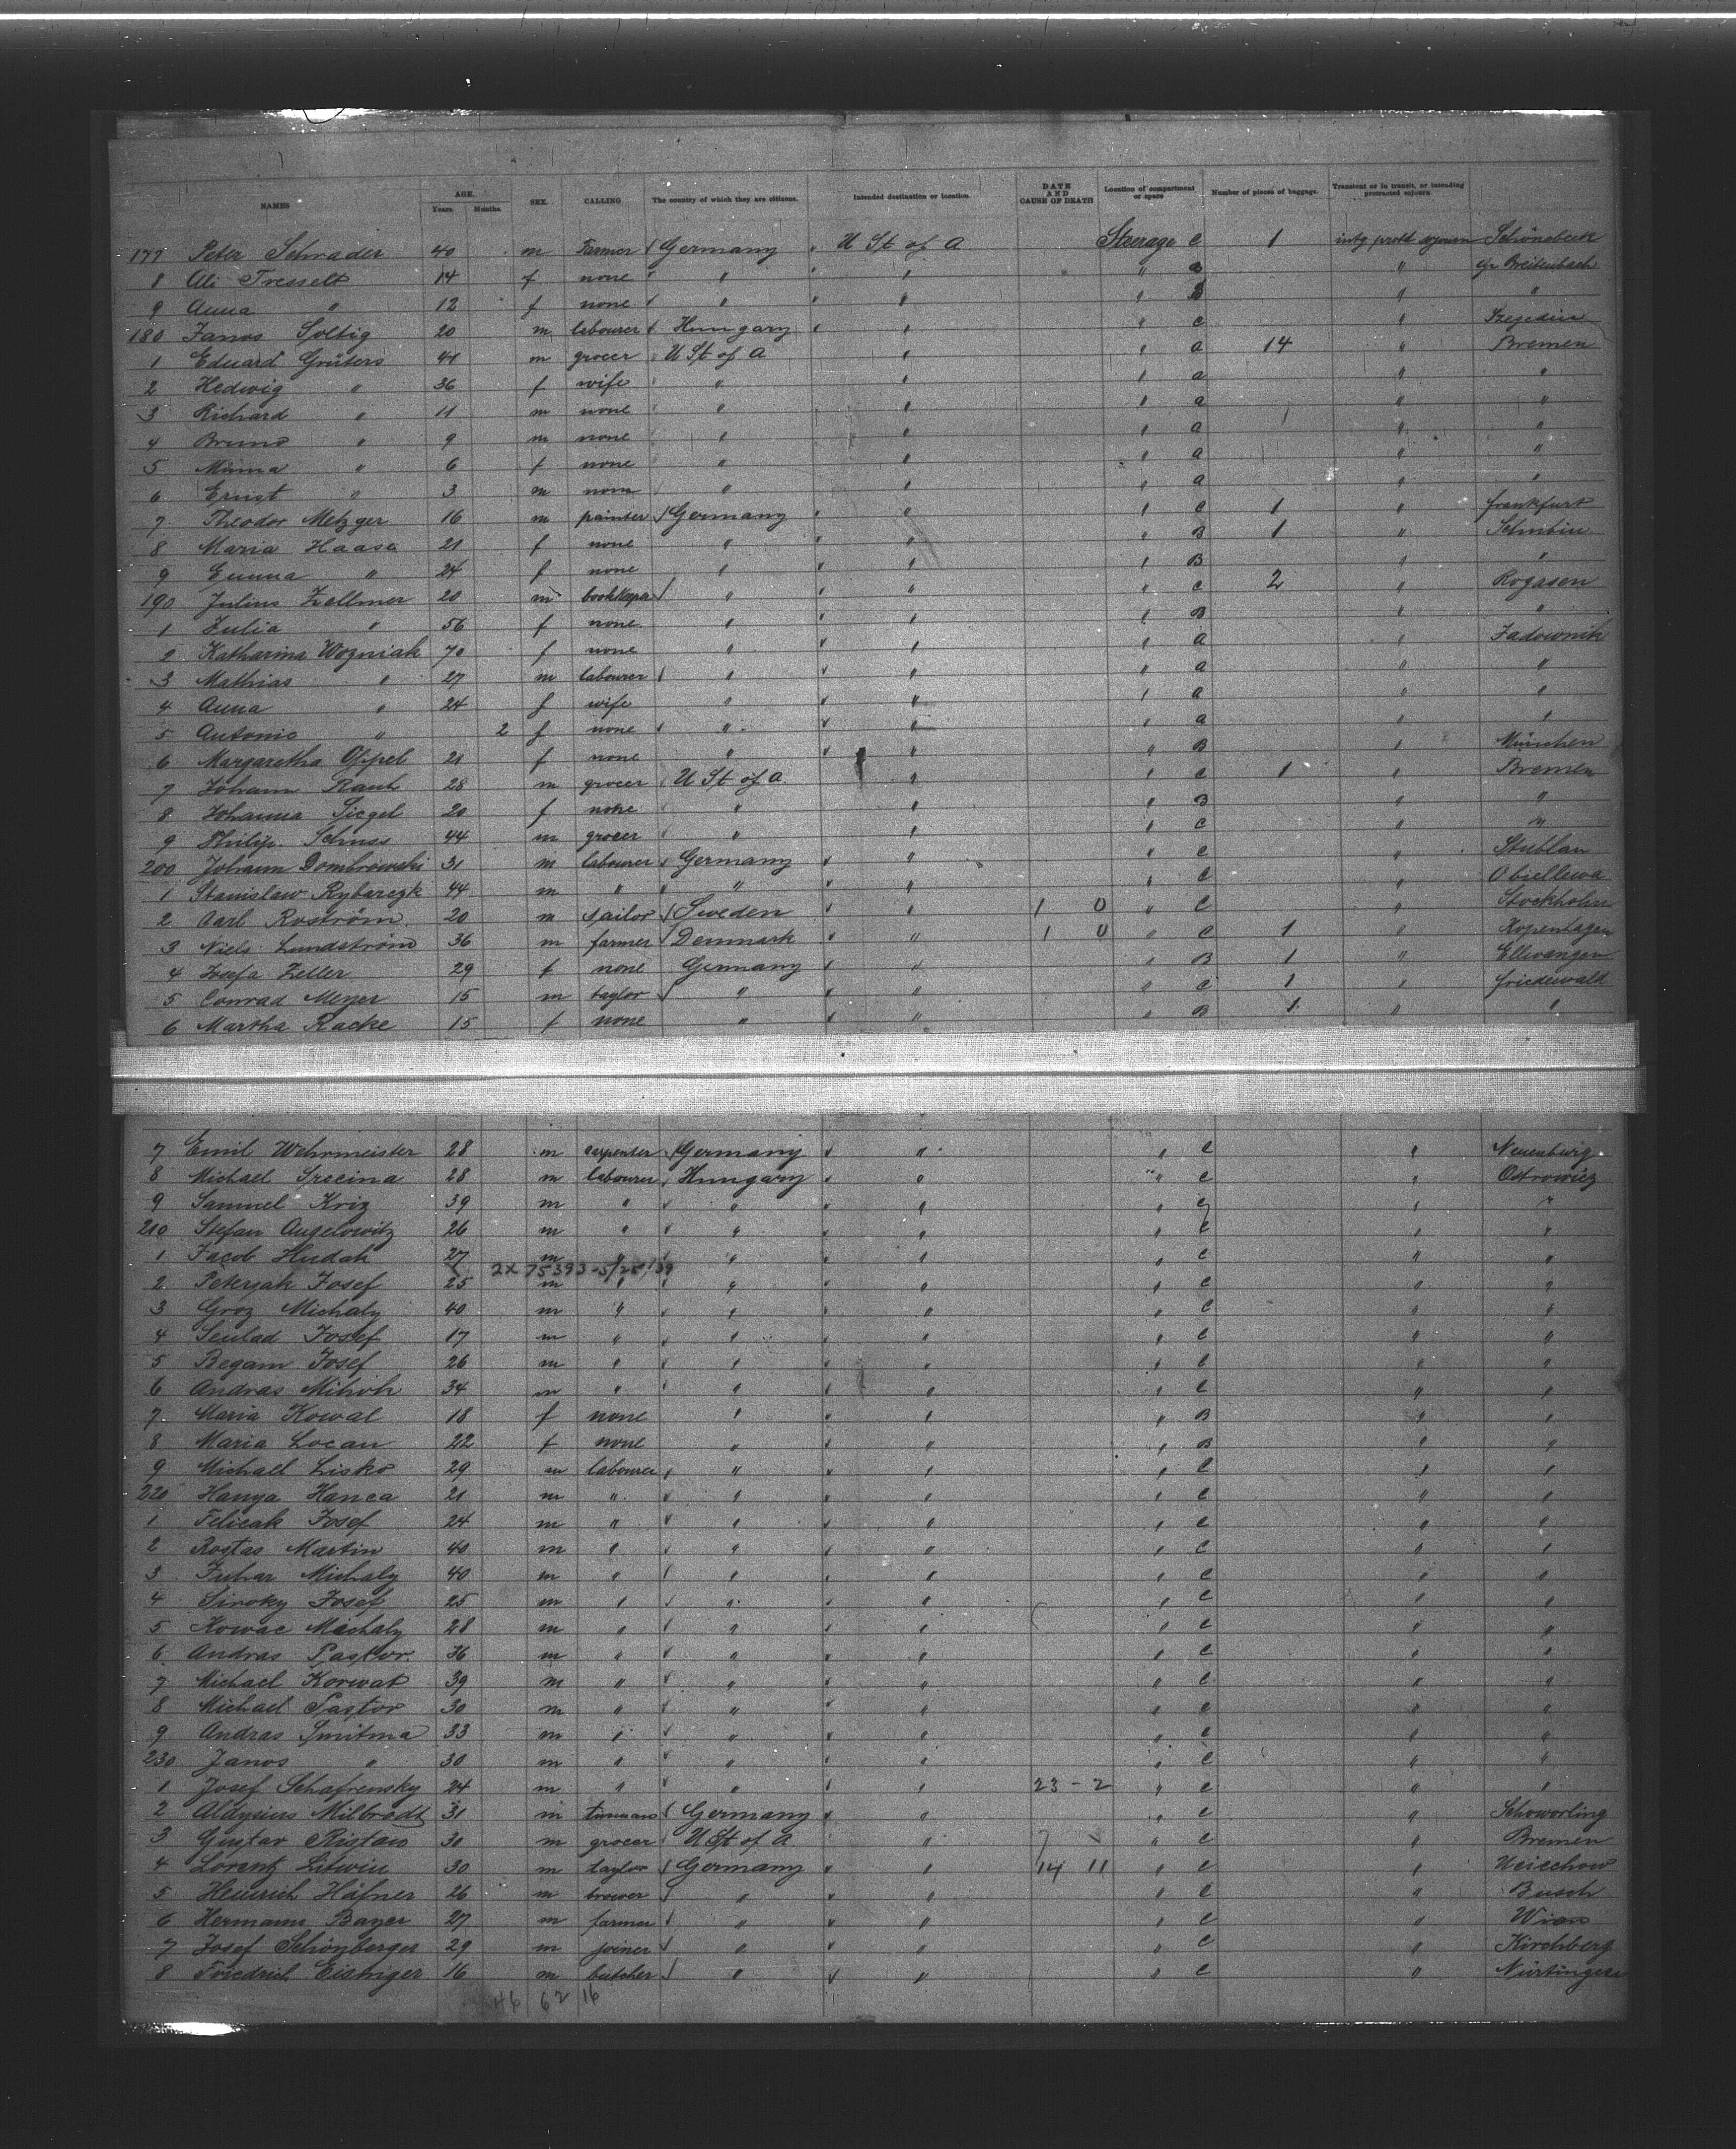 NAMES AGE. Years. Months. SEX. CALLING The country of which they are citizens. Intended destination or location. DATE AND CAUSE OF DEATH Location of compartment or space Number of pieces of baggage. Transient or in transit, or intending protracted sojourn
177 Peter Schrader 40 m Farmer Germany U St of A Steerage C 1 intg protd sojourn Schönebeck
8 Tresselt 14 f none " " " a " gr Breitenbach
9 Anna " 12 f none " " " B " "
180 Janos Soltig 20 m labourer Hungary " " C " Szegedin
1 Eduard Grüters 41 m grocer U St of A " " a 14 " Bremen
2 Hedwig " 36 f wife " " " a " "
3 Richard " 11 m none " " " a " "
4 Bruno " 9 m none " " " a " "
5 Minna " 6 f none " " " a " "
6 Ernst " 3 m none " " " a " "
7 Theodor Metzger 16 m painter Germany " " C 1 " Frankfurt
8 Maria Haase 21 f none " " " B 1 " Schubin
9 Emma " 24 f none " " " B " "
190 Julius Zellmer 20 m bookkeeper " " " C 2 " Rogasen
1 Julia " 56 f none " " " B " "
2 Katharina Wozniak 70 f none " " " a " Zadownik
3 Mathias " 27 m labourer " " " a " "
4 Anna " 24 f wife " " " a " "
5 Antonie " 2 f none " " " a " "
6 Margaretha Oppel 21 f none " " " B " München
7 Johann Rauh 28 m grocer U St of A " " C 1 " Bremen
8 Johanna Siegel 20 f none " " " B " "
9 Philip Schuss 44 m grocer " " " C " "
200 Johann Dombrowski 31 m labourer Germany " " C " Stublau
1 Stanislaw Rybarczk 44 m " " " " C " Obiellewa
2 Carl Roström 20 m sailor Sweden " 1 0 " C " Stockholm
3 Niels Lundström 36 m farmer Denmark " 1 0 " C 1 " Kopenhagen
4 Josefa Zeller 29 f none Germany " " B 1 " Ellwangen
5 Conrad Meyer 15 m taylor " " " C 1 " Friedewald
6 Martha Racke 15 f none " " " B 1 " "
7 Emil Wehrmeister 28 m carpenter Germany " " C " Neuenburg
8 Michael Srecina 28 m labourer Hungary " " C " Ostrowicz
9 Samuel Kriz 39 m " " " " C " "
210 Stefan Angelowitz 26 m " " " " C " "
1 Jacob Hudak 27 m " " " " C " "
2X 75393-5/25/39
2 Peterjak Josef 25 m " " " " C " "
3 Groz Michaly 40 m " " " " C " "
4 Senlad Josef 17 m " " " " C " "
5 Begam Josef 26 m " " " " C " "
6 Andras Mihok 34 m " " " " C " "
7 Maria Kowal 18 f none " " " B " "
8 Maria Locan 22 f none " " " B " "
9 Michael Lisko 29 m labourer " " " C " "
220 Hanya Hanca 21 m " " " " C " "
1 Felicak Josef 24 m " " " " C " "
2 Rostas Martin 40 m " " " " C " "
3 Juhar Michaly 40 m " " " " C " "
4 Siroky Josef 25 m " " " " C " "
5 Kowac Michaly 28 m " " " " C " "
6 Andras Pastor 36 m " " " " C " "
7 Michael Korwat 39 m " " " " C " "
8 Michael Pastor 30 m " " " " C " "
9 Andras Smitma 33 m " " " " C " "
230 Janos " 30 m " " " " C " "
1 Josef Schafrensky 24 m " " " 23 - 2 " C " "
2 Aloysius Milbradt 31 m Germany " " C " Schoworling
3 Gustav Ristau 30 m grocer U St of A " " C " Bremen
4 Lorentz Litwin 30 m taylor Germany " 14 11 " C " Ucicchow
5 Heinrich Häfner 26 m brewer " " " C " Busch
6 Hermann Bayer 27 m farmer " " " C " Wien
7 Josef Schönberger 29 m joiner " " " C " Kirchberg
8 Friedrich Eisiniger 16 m butcher " " " C " Nürtingen
46 / 62 / 16